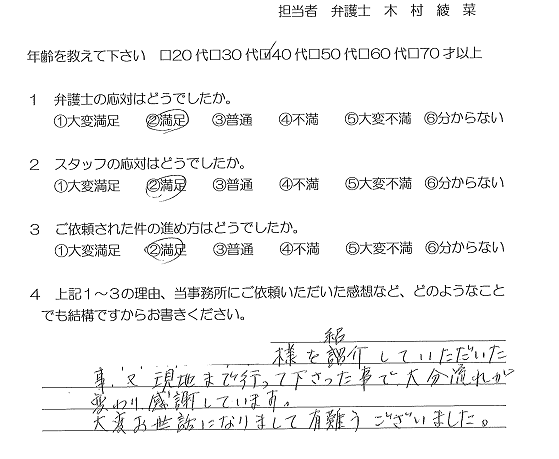 担当者 弁護士 木 村 綾 菜
年齢を教えて下さい □20代□30代☑40代□50代□60代□70才以上
1 弁護士の応対はどうでしたか。
①大変満足 ②満足 ③普通 ④不満 ⑤大変不満 ⑥分からない
2 スタッフの応対はどうでしたか。
①大変満足 ②満足 ③普通 ④不満 ⑤大変不満 ⑥分からない
3 ご依頼された件の進め方はどうでしたか。
①大変満足 ②満足 ③普通 ④不満 ⑤大変不満 ⑥分からない
4 上記1～3の理由、当事務所にご依頼いただいた感想など、どのようなこと
でも結構ですからお書きください。
紹
様を紹介していただいた
事、又、現地まで行って下さった事で、大分流れが
変わり、感謝しています。
大変お世話になりまして有難うございました。